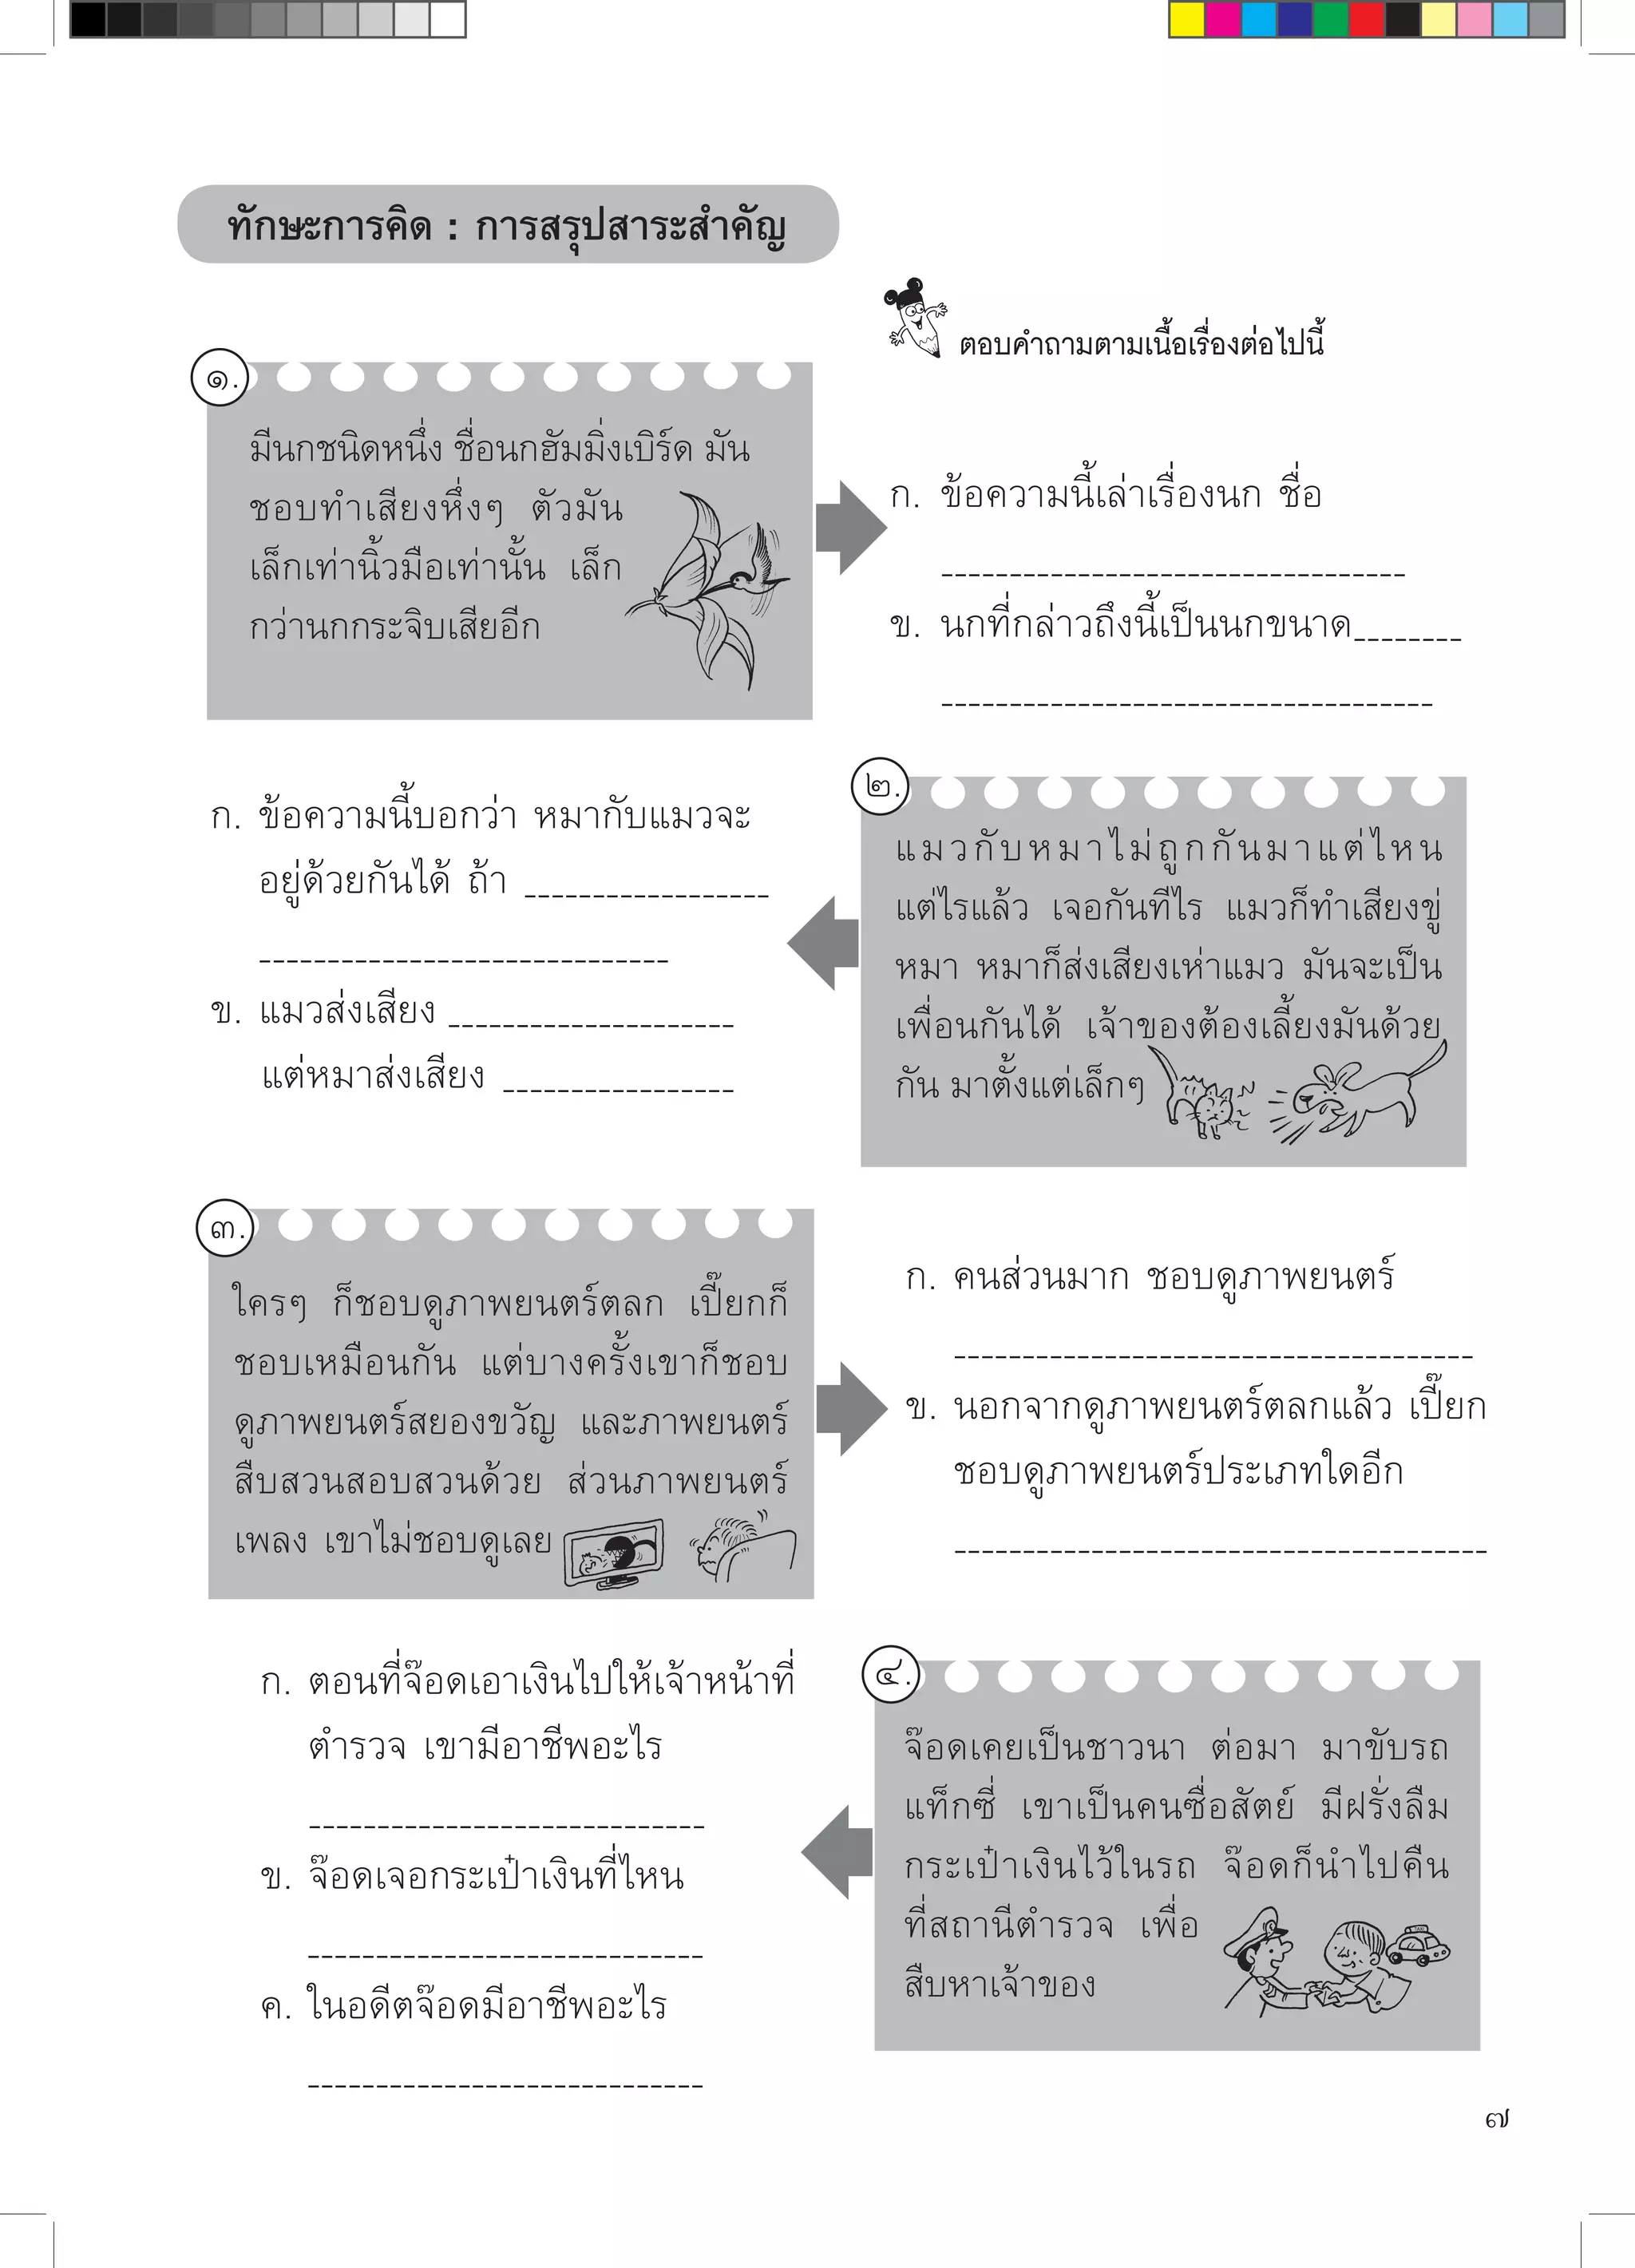 ทักษะการคิด : การสรุปสาระสำคัญ
ตอบคำถามตามเนื้อเรื่องต่อไปนี้
๑.
มีนกชนิดหนึ่ง ชื่อนกฮัมมิ่งเบิร์ด มัน
ชอบทำเสียงหึ่งๆ ตัวมัน
เล็กเท่านิ้วมือเท่านั้น เล็ก
กว่านกกระจิบเสียอีก
ก. ข้อความนี้เล่าเรื่องนก ชื่อ
----------------------------------
ข. นกที่กล่าวถึงนี้เป็นนกขนาด--------
------------------------------------
๒.
แมวกับหมาไม่ถูกกันมาแต่ไหน
แต่ไรแล้ว เจอกันทีไร แมวก็ทำเสียงขู่
หมา หมาก็ส่งเสียงเห่าแมว มันจะเป็น
เพื่อนกันได้ เจ้าของต้องเลี้ยงมันด้วย
กัน มาตั้งแต่เล็กๆ
ก. ข้อความนี้บอกว่า หมากับแมวจะ
อยู่ด้วยกันได้ ถ้า ------------------
------------------------------
ข. แมวส่งเสียง ---------------------
แต่หมาส่งเสียง -----------------
๓.
ใครๆ ก็ชอบดูภาพยนตร์ตลก เปี๊ยกก็
ชอบเหมือนกัน แต่บางครั้งเขาก็ชอบ
ดูภาพยนตร์สยองขวัญ และภาพยนตร์
สืบสวนสอบสวนด้วย ส่วนภาพยนตร์
เพลง เขาไม่ชอบดูเลย
ก. คนส่วนมาก ชอบดูภาพยนตร์
--------------------------------------
ข. นอกจากดูภาพยนตร์ตลกแล้ว เปี๊ยก
ชอบดูภาพยนตร์ประเภทใดอีก
---------------------------------------
๔.
จ๊อดเคยเป็นชาวนา ต่อมา มาขับรถ
แท็กซี่ เขาเป็นคนซื่อสัตย์ มีฝรั่งลืม
กระเป๋าเงินไว้ในรถ จ๊อดก็นำไปคืน
ที่สถานีตำรวจ เพื่อ
สืบหาเจ้าของ
TAXI
ก. ตอนที่จ๊อดเอาเงินไปให้เจ้าหน้าที่
ตำรวจ เขามีอาชีพอะไร
-----------------------------
ข. จ๊อดเจอกระเป๋าเงินที่ไหน
-----------------------------
ค. ในอดีตจ๊อดมีอาชีพอะไร
-----------------------------
๗